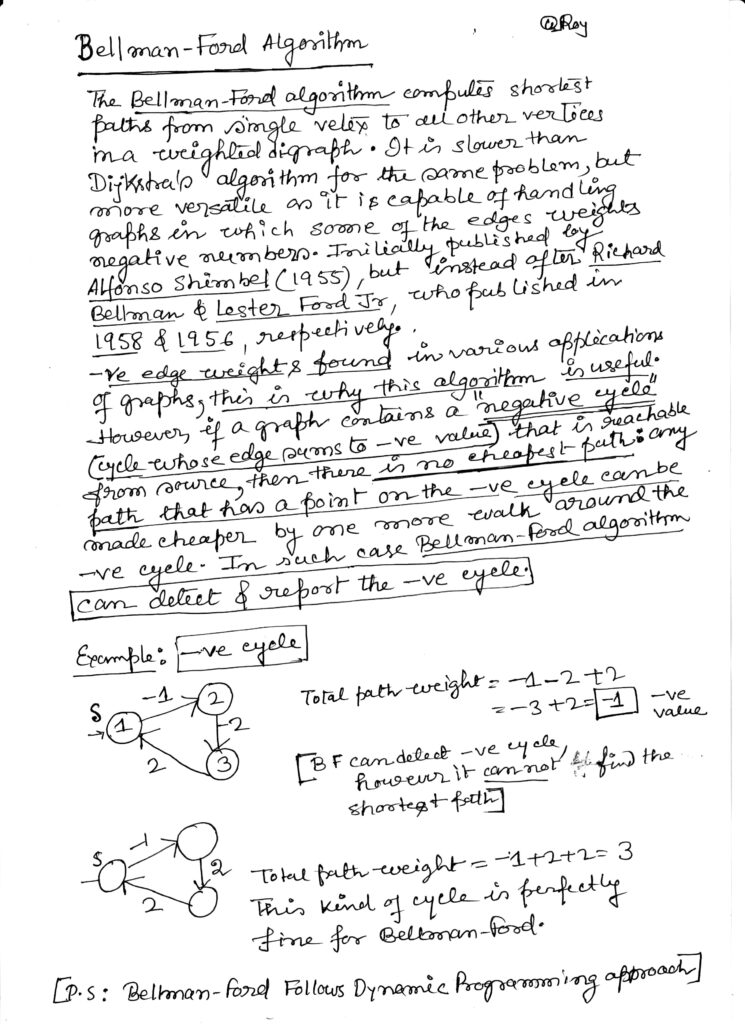 @Roy
Bellman-Ford Algorithm
The Bellman-Ford algorithm computes shortest
paths from single vetex to all other vertices
in a weighted digraph. It is slower than
Dijkstra's algorithm for the same problem, but
more versatile as it is capable of handling
graphs in which some of the edges weights
negative numbers. Initially published by
Alfonso Shimbel (1955), but instead after Richard
Bellman & Lester Ford Jr, who published in
1958 & 1956, respectively.
-ve edge weights found in various applications
of graphs, this is why this algorithm is useful.
However, if a graph contains a "negative cycle"
(cycle whose edge sums to -ve value) that is reachable
from source, then there is no cheapest path: any
path that has a point on the -ve cycle can be
made cheaper by one more walk around the
-ve cycle. In such case Bellman-Ford algorithm
can detect & report the -ve cycle.
Example: -ve cycle
S 1 -1 2 -2 3 2
Total path weight = -1-2+2
= -3+2= -1 -ve value
[BF can detect -ve cycle,
however it can not find the
shortest path]
S -1 2 2
Total path weight = -1+2+2= 3
This kind of cycle is perfectly
fine for Bellman-Ford.
[P.S: Bellman-Ford Follows Dynamic Programming approach]